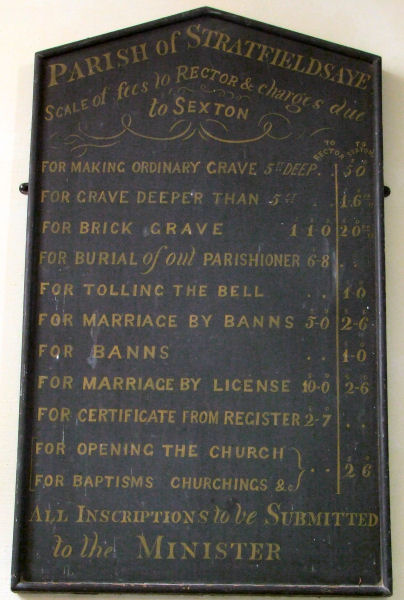 PARISH of STRATFIELDSAYE
SCALE of fees to RECTOR & charges due
to SEXTON
TO RECTOR TO SEXTON
FOR MAKING ORDINARY GRAVE 5FT DEEP . . 5 0
FOR GRAVE DEEPER THAN 5FT . . 1.6
FOR BRICK GRAVE 1 1 0 20
FOR BURIAL of out PARISHIONER 6-8 . .
FOR TOLLING THE BELL . . 1 0
FOR MARRIAGE BY BANNS 5-0 2-6
FOR BANNS . . 1-0
FOR MARRIAGE BY LICENSE 10-0 2-6
FOR CERTIFICATE FROM REGISTER 2-7 . .
FOR OPENING THE CHURCH
FOR BAPTISMS CHURCHINGS & . . 2 6
ALL INSCRIPTIONS to be SUBMITTED
to the MINISTER